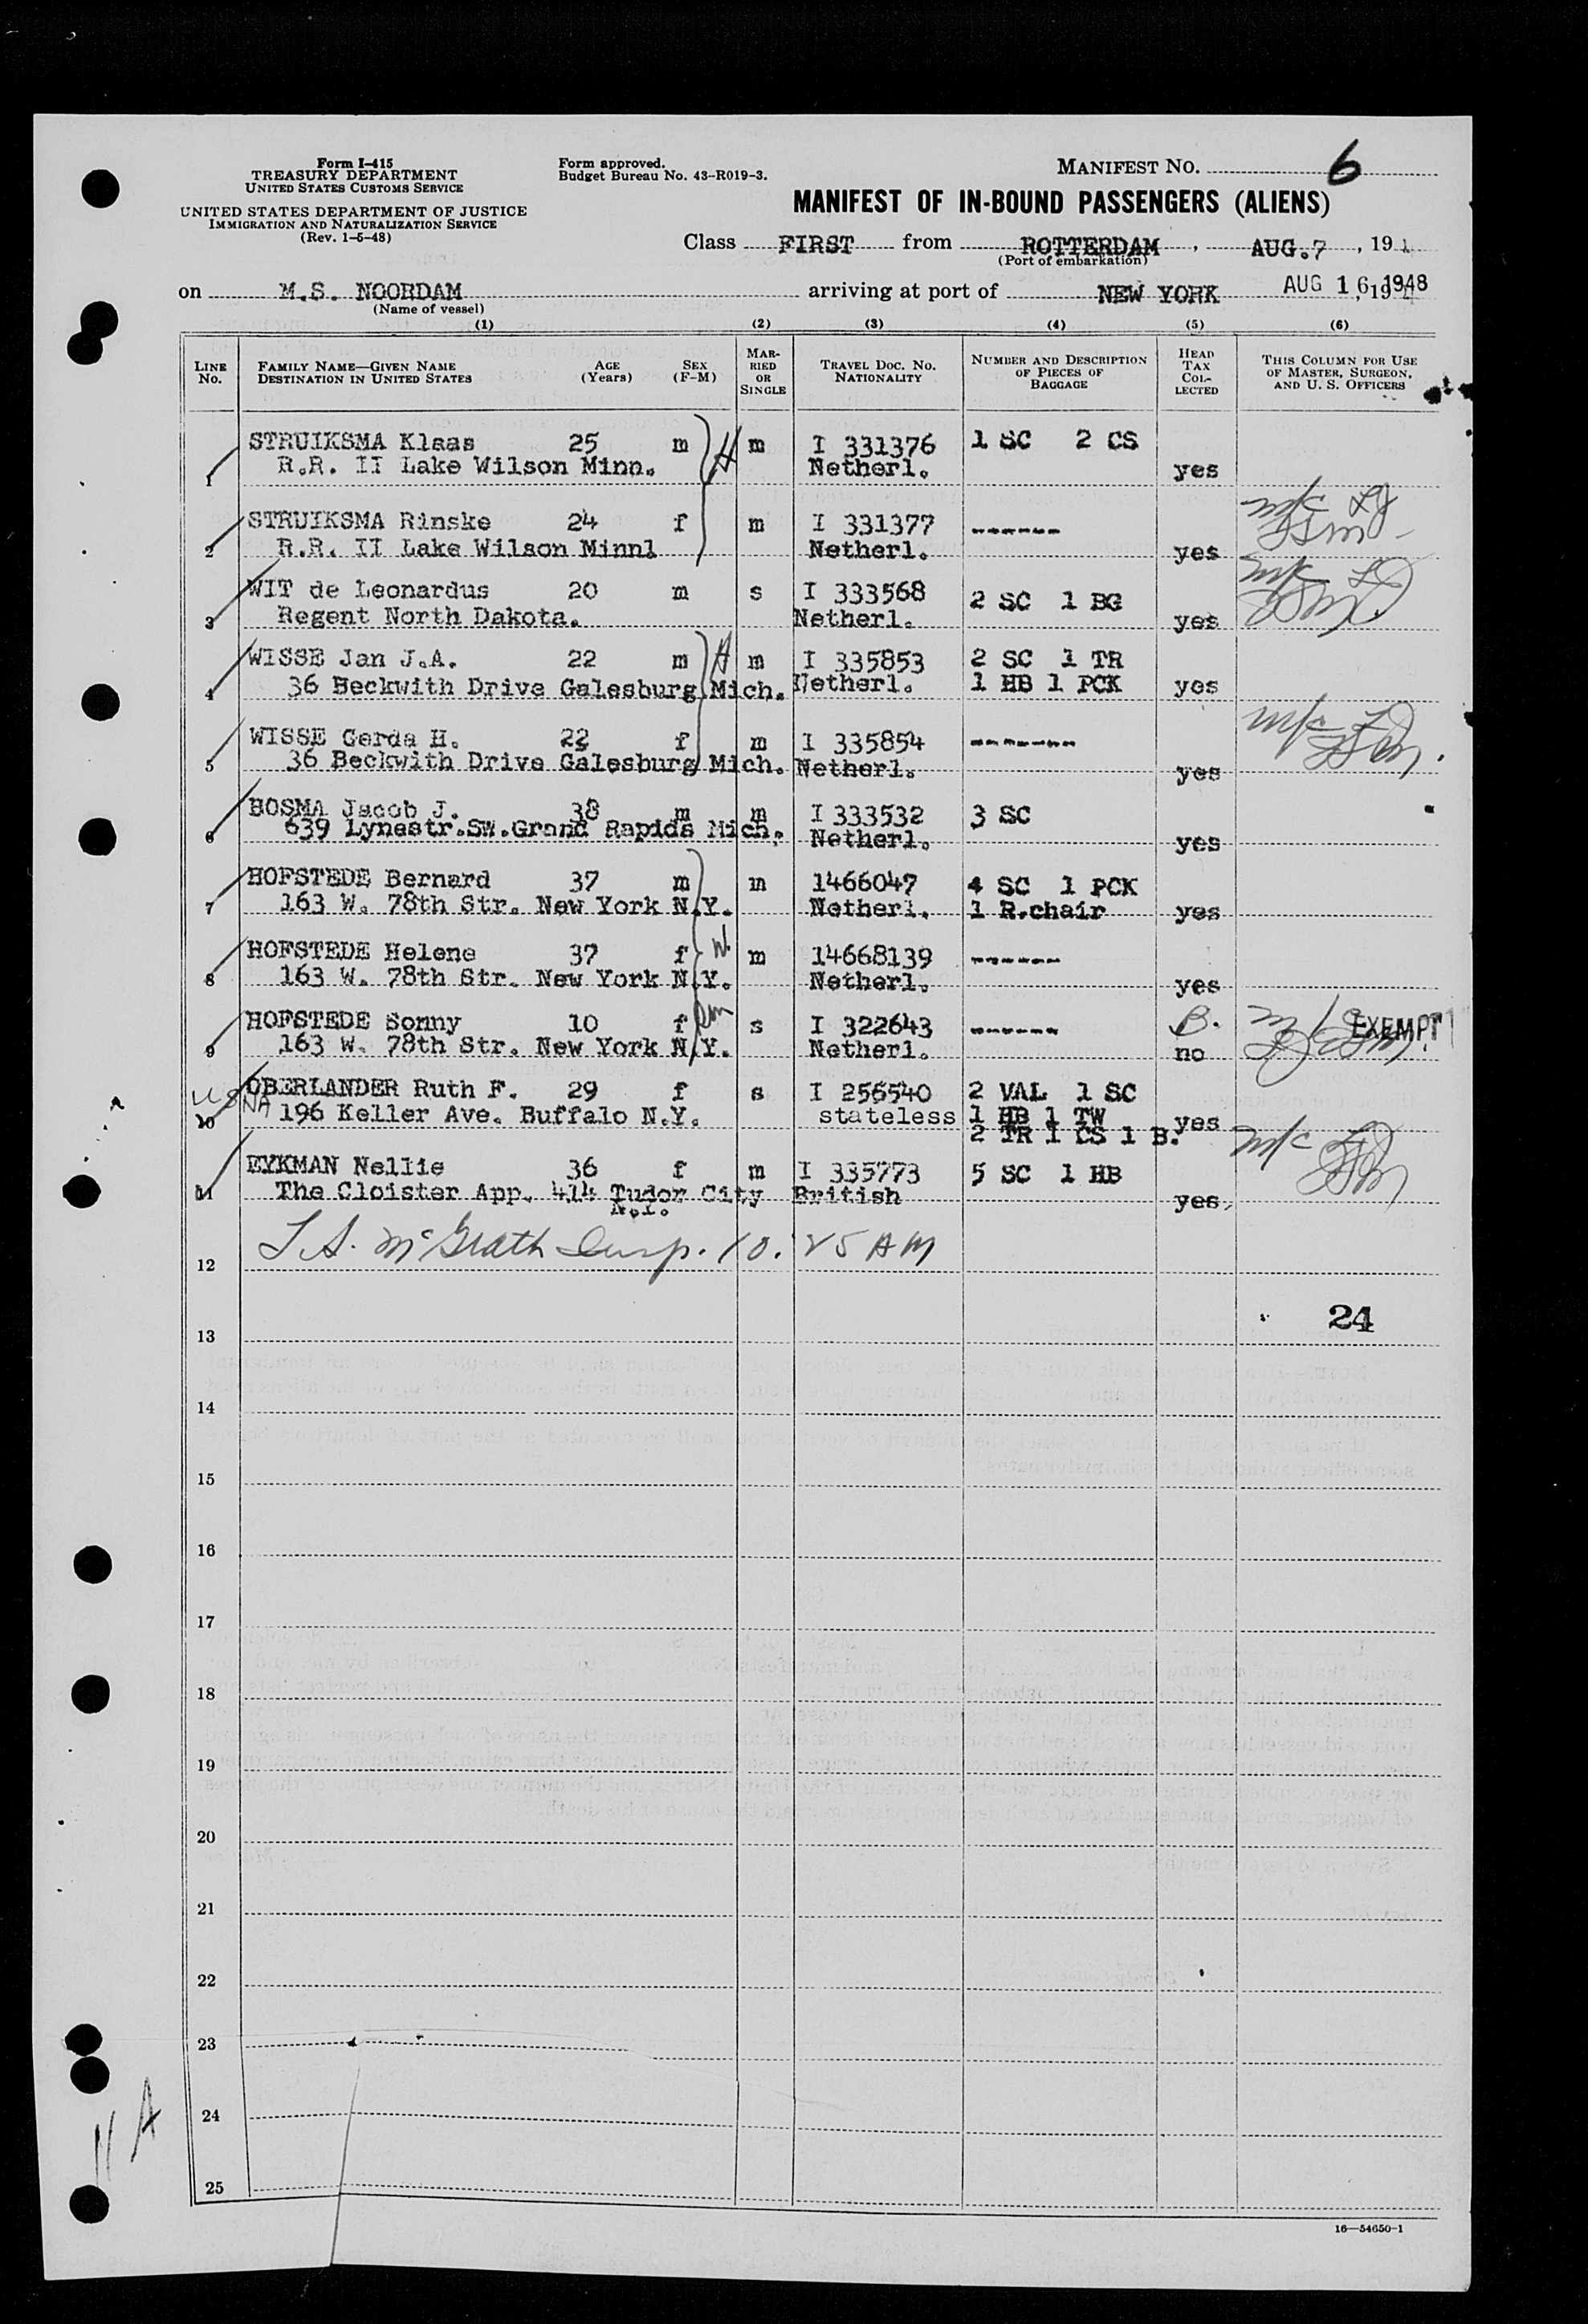 Form I-415
TREASURY DEPARTMENT
UNITED STATES CUSTOMS SERVICE
UNITED STATES DEPARTMENT OF JUSTICE
IMMIGRATION AND NATURALIZATION SERVICE
(Rev. 1-5-48)
Form approved.
Budget Bureau No. 43-R019-3.
MANIFEST NO. 6
MANIFEST OF IN-BOUND PASSENGERS (ALIENS)
Class FIRST from ROTTERDAM, AUG.7, 19
(Port of embarkation)
on M.S. NOORDAM arriving at port of NEW YORK AUG 16 1948, 19
(Name of vessel)
(1) (2) (3) (4) (5) (6)
LINE No. FAMILY NAME—GIVEN NAME DESTINATION IN UNITED STATES AGE (Years) SEX (F-M) MARRIED OR SINGLE TRAVEL DOC. NO. NATIONALITY NUMBER AND DESCRIPTION OF PIECES OF BAGGAGE HEAD TAX COLLECTED THIS COLUMN FOR USE OF MASTER, SURGEON, AND U. S. OFFICERS
STRUIKSMA Klaas 25 m H m I 331376 1 SC 2 CS
1 R.R. II Lake Wilson Minn. Netherl. yes
STRUIKSMA Rinske 24 f m I 331377 ------
2 R.R. II Lake Wilson Minnl Netherl. yes
WIT de Leonardus 20 m s I 333568 2 SC 1 BG
3 Regent North Dakota. Netherl. yes
WISSE Jan J.A. 22 m H m I 335853 2 SC 1 TR
4 36 Beckwith Drive Galesburg Mich. Netherl. 1 HB 1 PCK yes
WISSE Gerda H. 22 f m I 335854 -------
5 36 Beckwith Drive Galesburg Mich. Netherl. yes
BOSMA Jacob J. 38 m m I 333532 3 SC
6 639 Lynestr.SW.Grand Rapids Mich. Netherl. yes
HOFSTEDE Bernard 37 m m 1466047 4 SC 1 PCK
7 163 W. 78th Str. New York N.Y. Netherl. 1 R.chair yes
HOFSTEDE Helene 37 f m 14668139 ------
8 163 W. 78th Str. New York N.Y. Netherl. yes
HOFSTEDE Sonny 10 f s I 322643 ------ B. EXEMPT
9 163 W. 78th Str. New York N.Y. Netherl. no
OBERLANDER Ruth F. 29 f s I 256540 2 VAL 1 SC
USNA
10 196 Keller Ave. Buffalo N.Y. stateless 1 HB 1 TW yes
2 TR 1 CS 1 B.
EYKMAN Nellie 36 f m I 335773 5 SC 1 HB
11 The Cloister App. 414 Tudor City British yes
N.Y.
T. S. McGrath Insp. 10.25 AM
12
24
13
14
15
16
17
18
19
20
21
22
23
24
25
16—54650-1
11 A